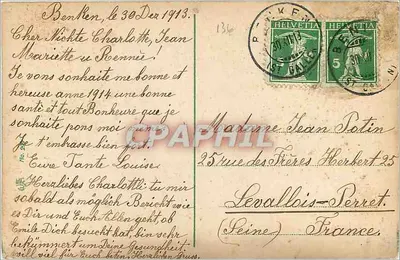 Benken, le 30 Dez 1913.
134
Cher Nichte Charlotte, Jean
Mariette u Rennié!
Je vous sonhaite une bonne et
héreuse anne 1914 une bonne
santé et tout Bonheure que je
sonhaite pons moi
Je t'embrasse bien fort!
Eure Tante Louise
Herzliebes Charlotti: tu mir
sobald als möglich Bericht wie
es Dir und Euch Allen geht ob
Emile Dich besucht hat, bin sehr
bekümmert um Deine Gesundheit.
will viel für Euch beten Herzlichen Gruss.
HELVETIA
HELVETIA
5
5
BENKEN
ST GALLEN
CPAPHIL
Madame Jean Potin
25 rue des Frères Herbert 25
Levallois-Perret.
(Seine) France.